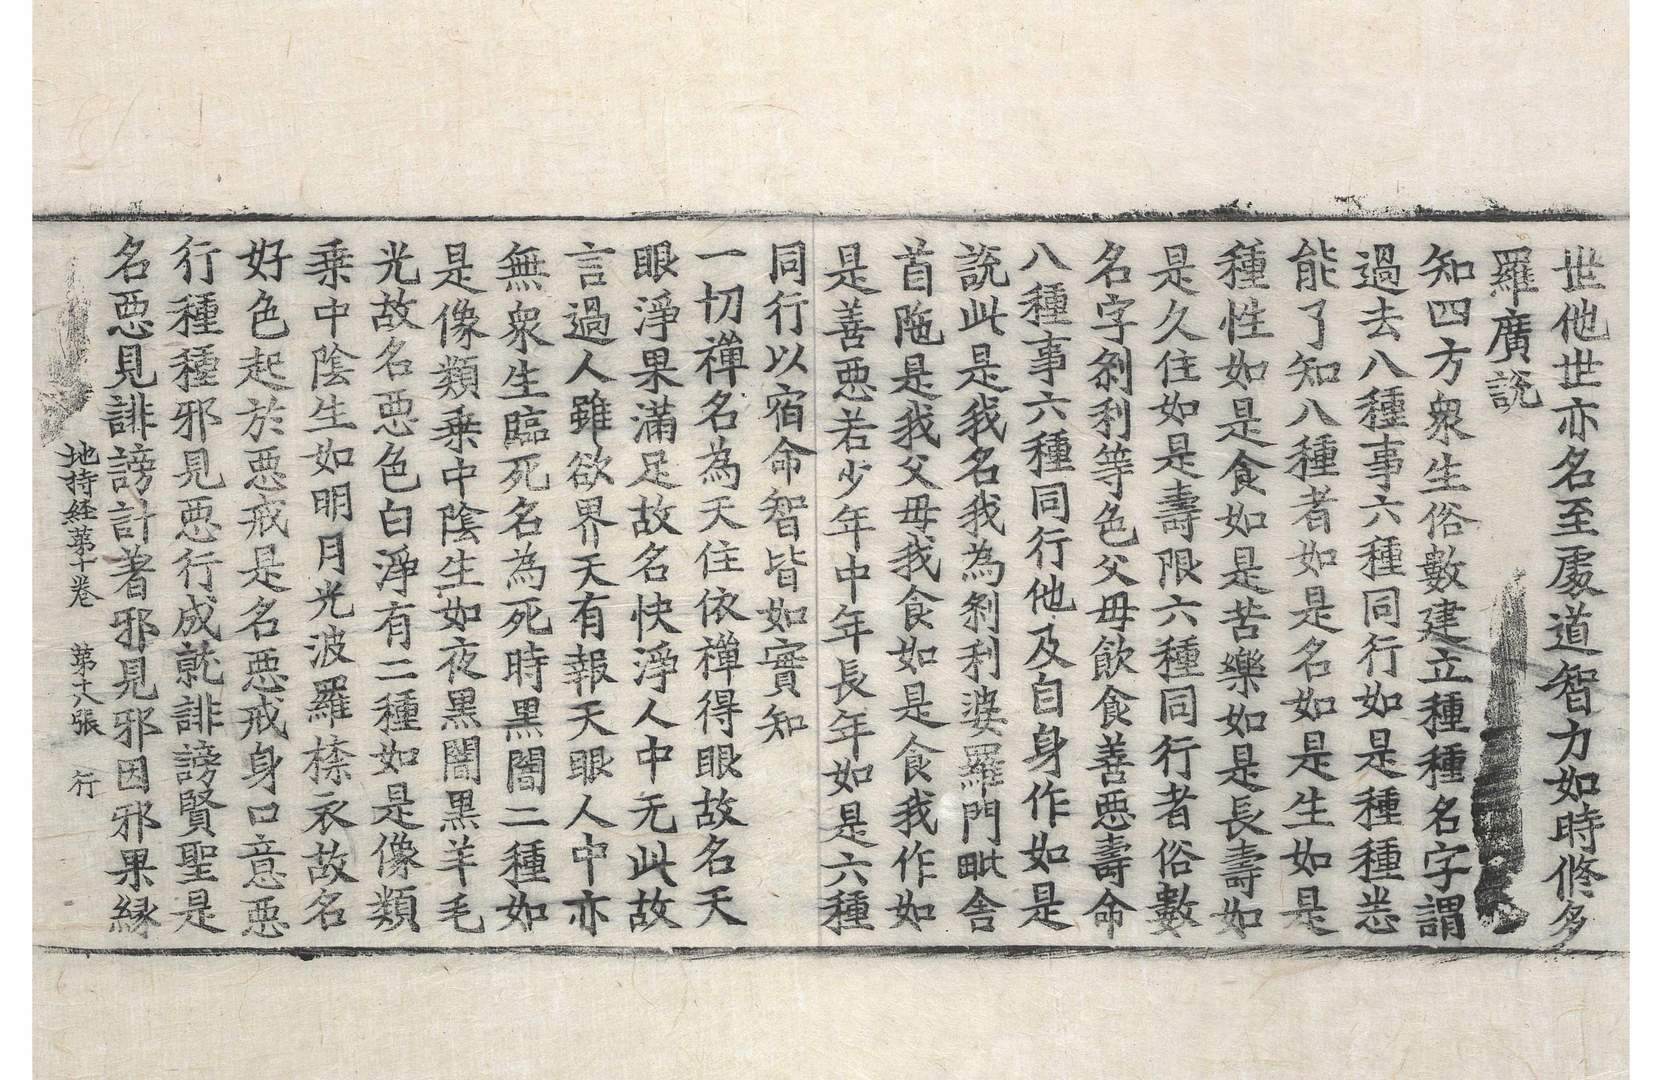 世他世亦名至處道智力如時修多
羅廣説
知四方衆生俗數建立種種名字謂
過去八種事六種同行如是種種悉
能了知八種者如是名如是生如是
種性如是食如是苦樂如是長壽如
是久住如是壽限六種同行者俗數
名字刹利等色父母飲食善惡壽命
八種事六種同行他及自身作如是
説此是我名我為刹利婆羅門毗舍
首陁是我父母我食如是食我作如
是善惡若少年中年長年如是六種
同行以宿命智皆如實知
一切禪名為天住依禪得眼故名天
眼淨果滿足故名快淨人中无此故
言過人雖欲界天有報天眼人中亦
無衆生臨死名為死時黑闇二種如
是像類乗中陰生如夜黑闇黑羊毛
光故名惡色白淨有二種如是像類
乗中陰生如明月光波羅㮈衣故名
好色起於惡戒是名惡戒身口意惡
行種種邪見惡行成就誹謗賢聖是
名惡見誹謗計著邪見邪因邪果緣
地持経第十卷 第十八張 行